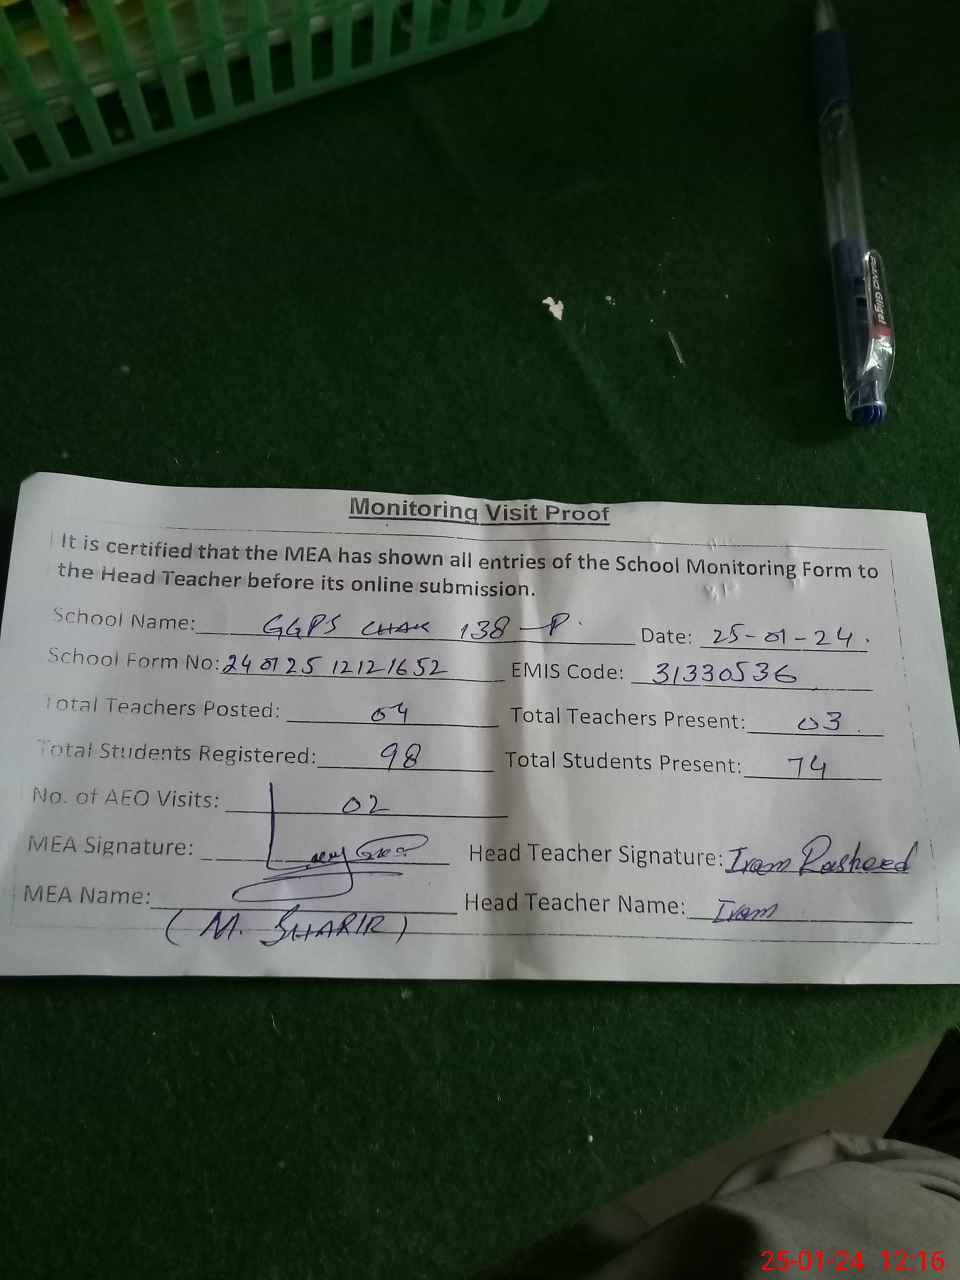 PIANO Gligel
Monitoring Visit Proof
It is certified that the MEA has shown all entries of the School Monitoring Form to
the Head Teacher before its online submission.
School Name: GGPS CHAK 138-P. Date: 25-01-24.
School Form No: 240125 12121652 EMIS Code: 31330536
Total Teachers Posted: 04 Total Teachers Present: 03
Total Students Registered: 98 Total Students Present: 74
No. of AEO Visits: 02
MEA Signature: Head Teacher Signature: Iram Rasheed
MEA Name: Head Teacher Name: Iram
(M. )
25-01-24 12:16